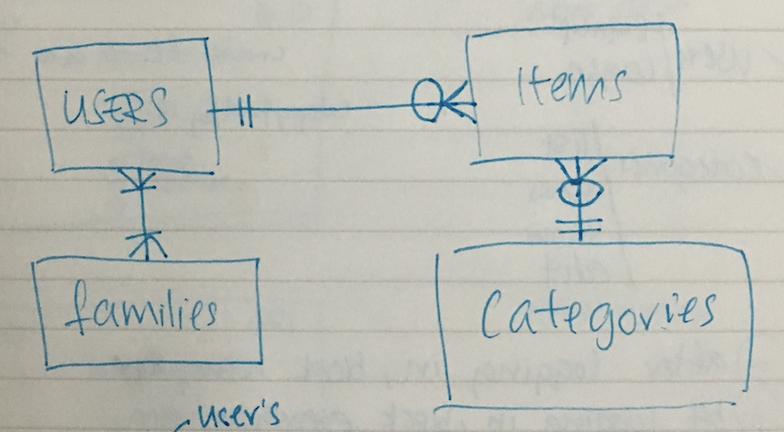 USERS
Items
families
Categories
user's